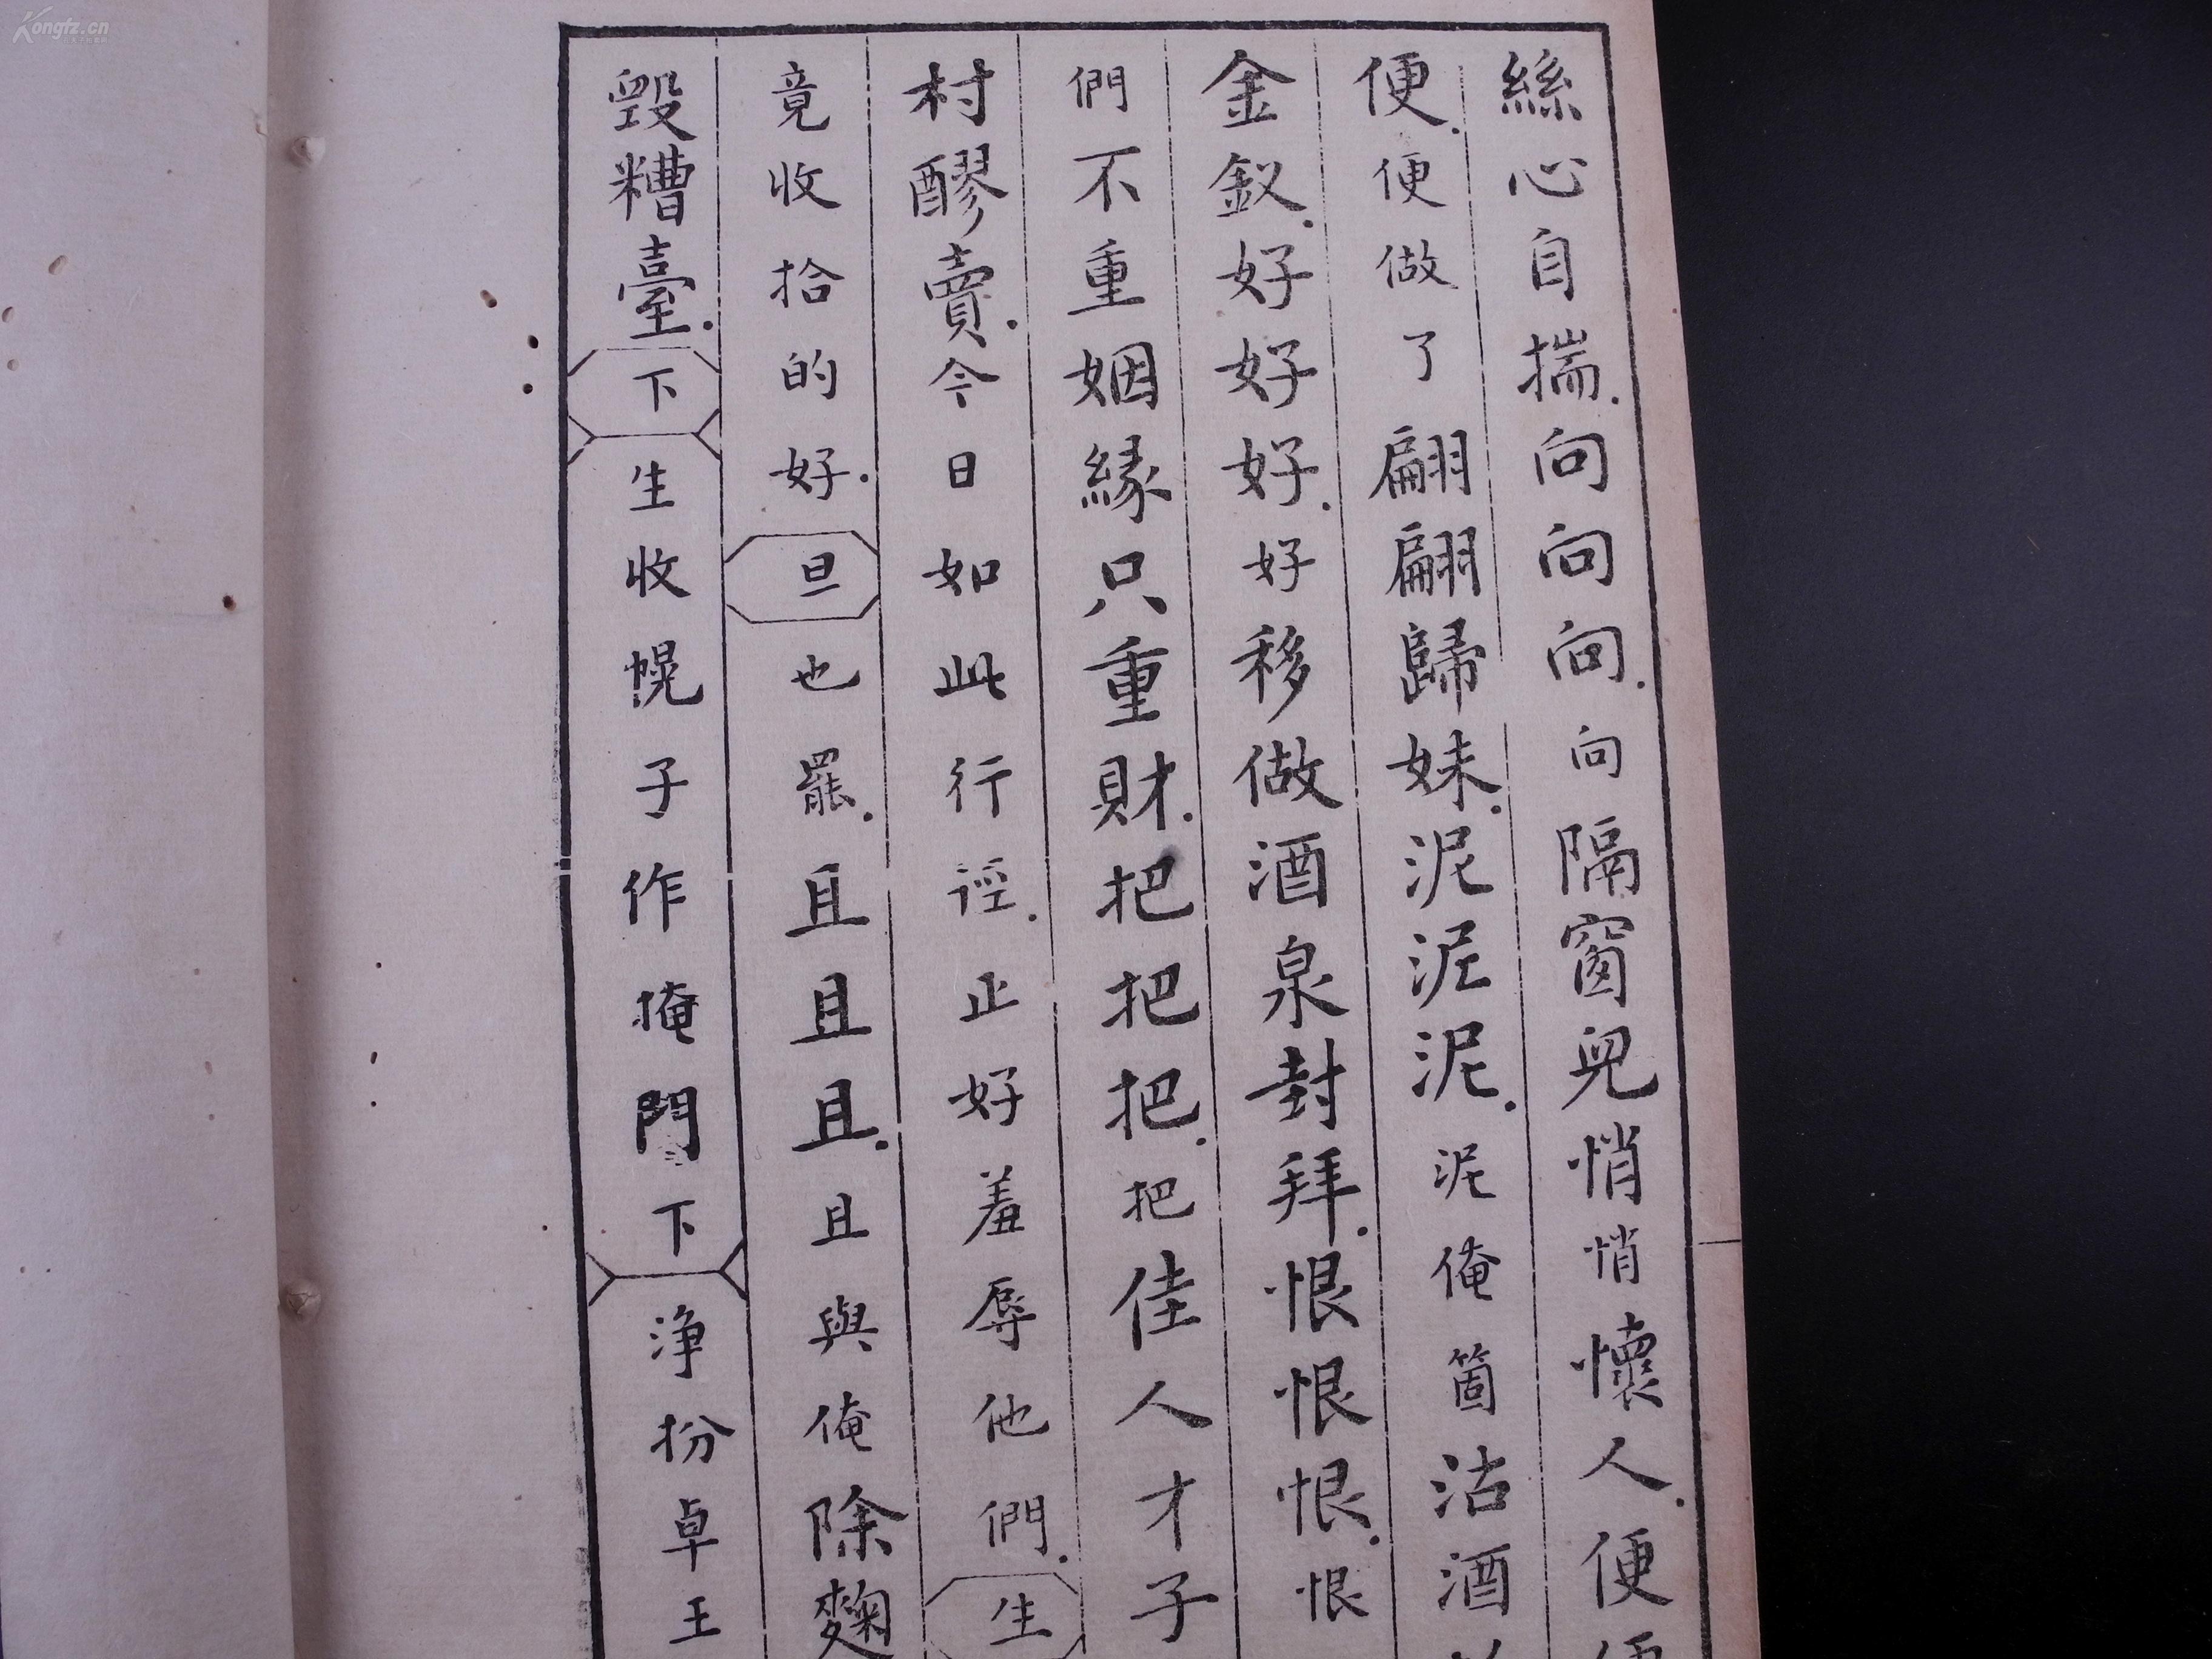 絲心自揣.向向向.向隔窗兒悄悄懷人.便便
便.便做了翩翩歸妹.泥泥泥.泥俺箇沽酒
金釵.好好好.好移做酒泉封拜.恨恨恨.恨
們不重姻緣只重財.把把把.把佳人才子
村醪賣.今日如此行逕.正好羞辱他們.生
竟收拾的好.旦也罷.且且且.且與俺除麴
毀糟臺.下生收幌子作掩門下淨扮卓王
Kongfz.cn